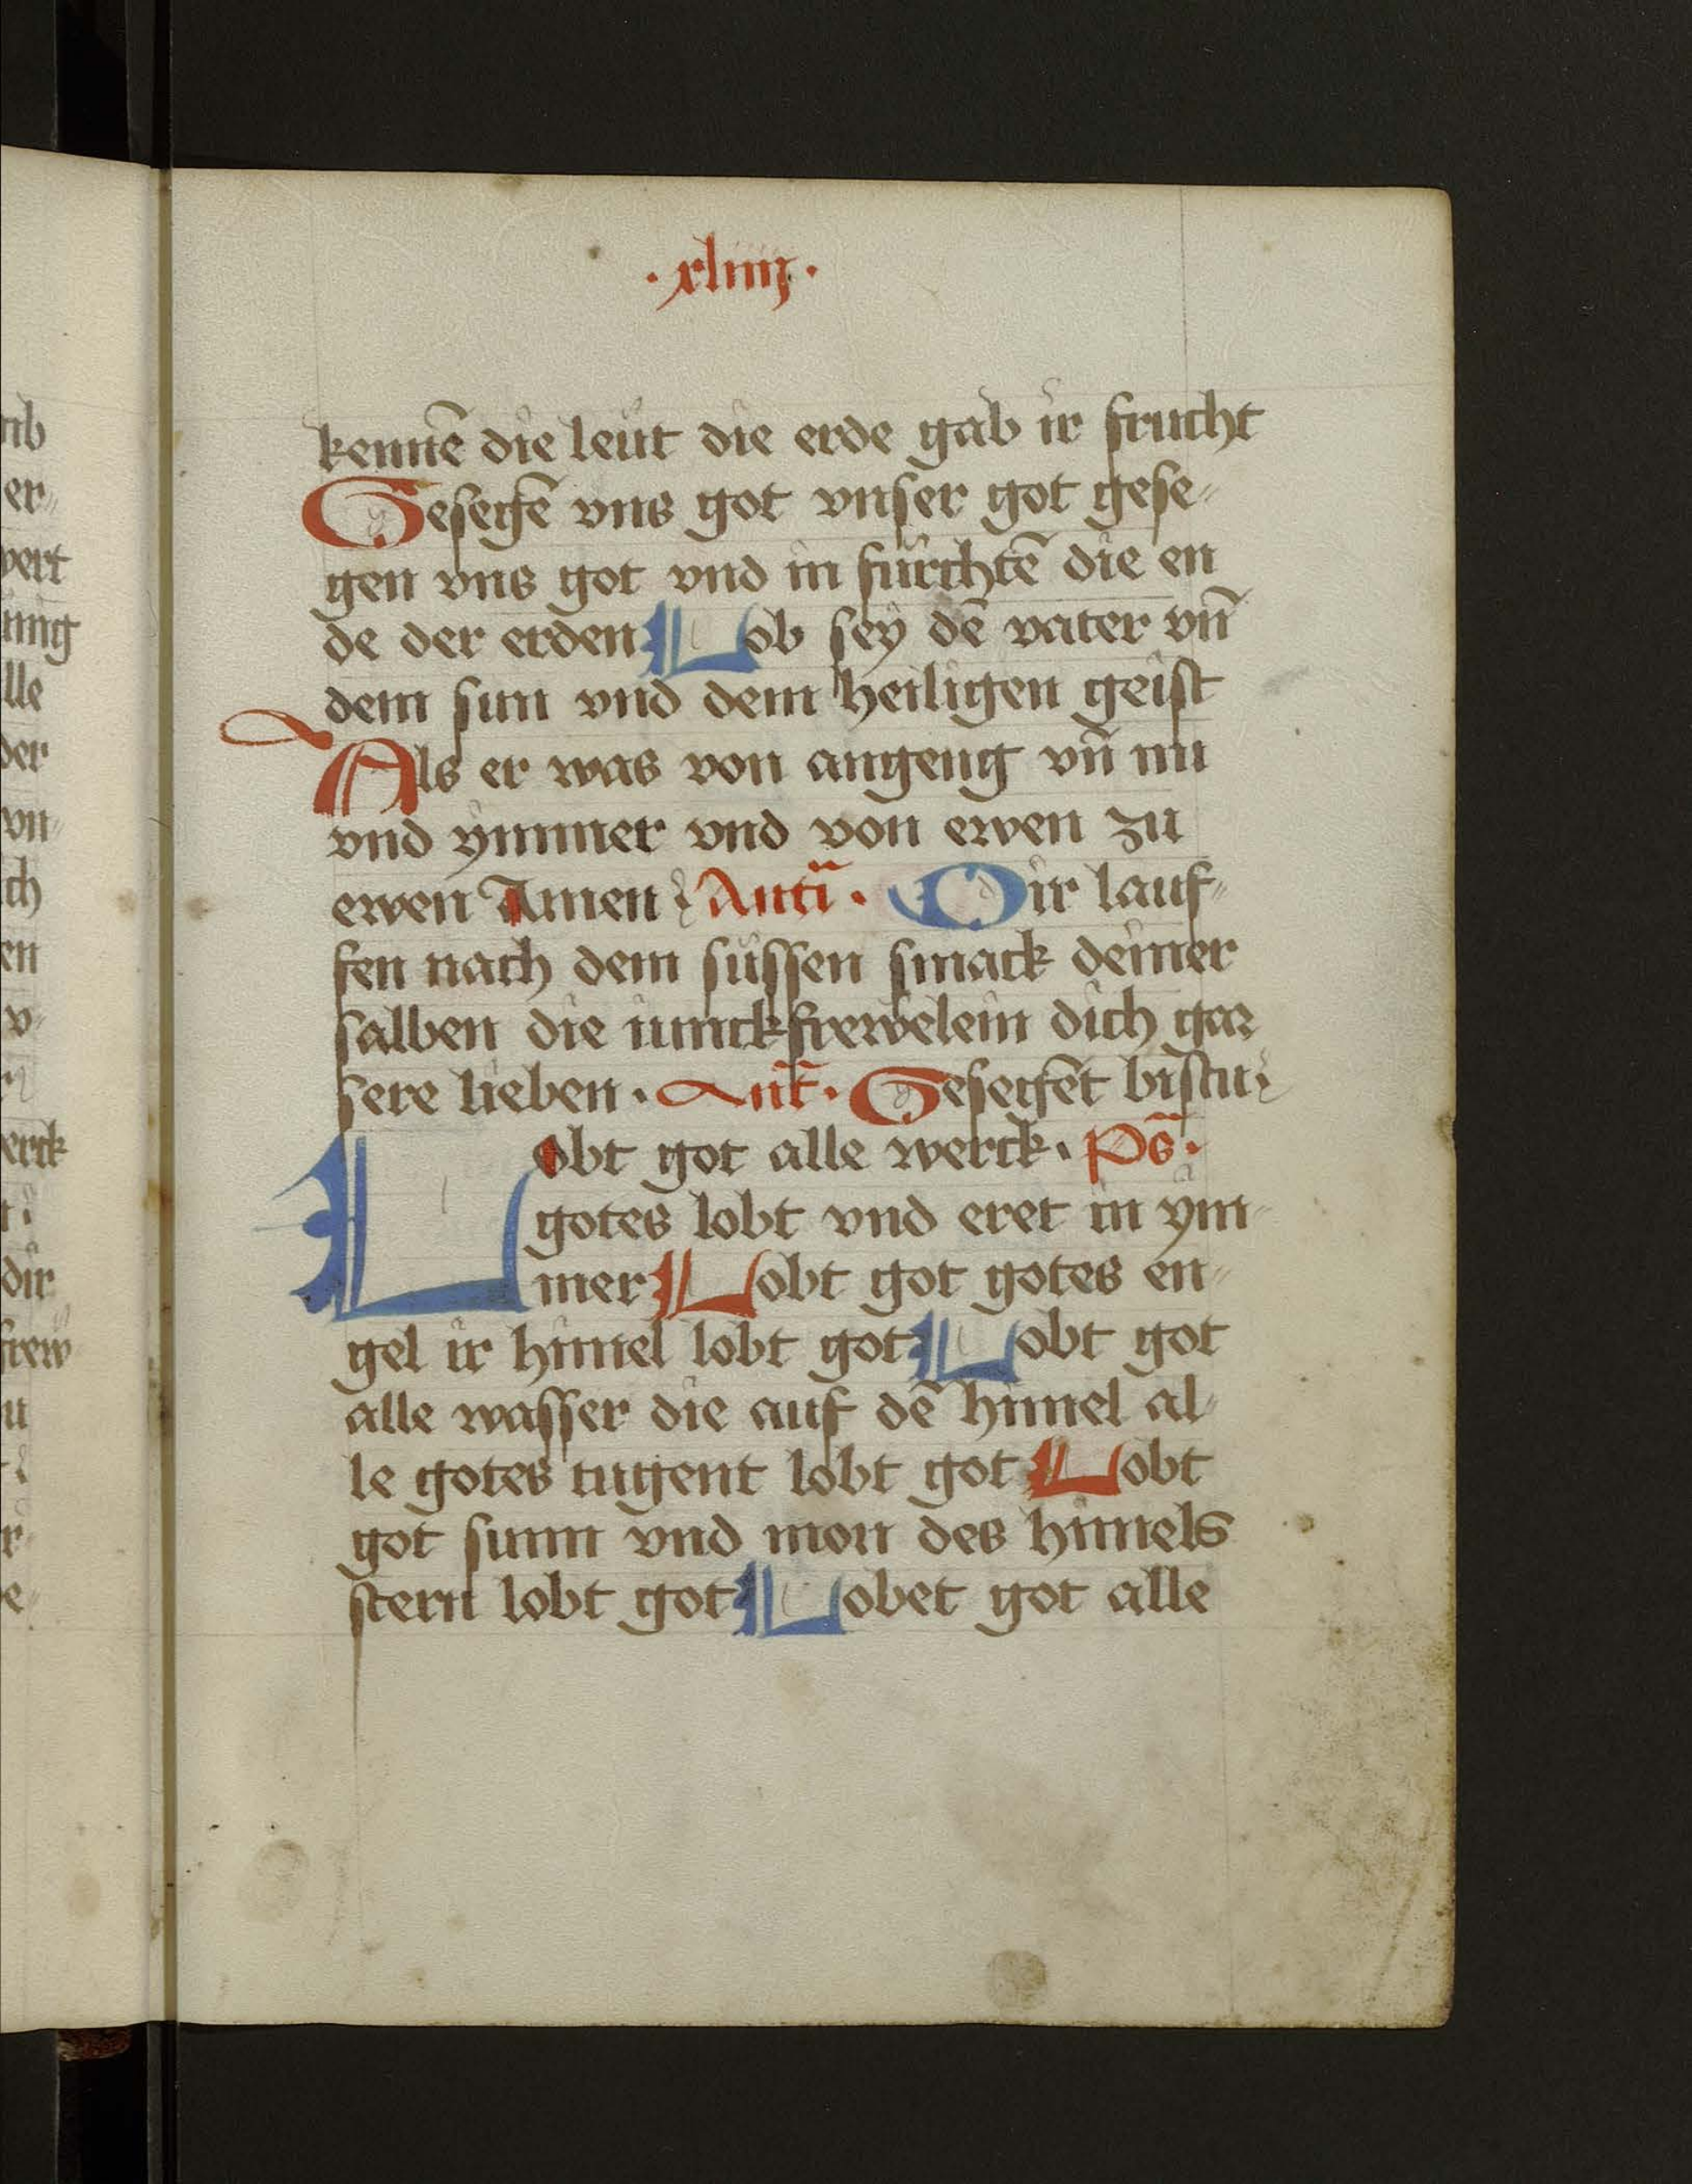 ·xliiij·
kennē die leut die erde gab ir frucht
Gesegē vns got vnser got gese⸗
gen vns got vnd in fürchtē die en
de der erden Lob sey dē vater vn̄
dem sun vnd dem heiligen geist
Als er was von angeng vn̄ nu
vnd ymmer vnd von ewen zu
ewen Amen Anti̅· Wir lauf⸗
fen nach dem süssen smack deiner
salben die iunckfrewelein dich gar
sere lieben· Ant̅· Gesegēt bistu
Lobt got alle werck· Ps̅·
gotes lobt vnd eret in ym⸗
mer Lobt got gotes en⸗
gel ir himel lobt got Lobt got
alle wasser die auf dē himel al⸗
le gotes tugent lobt got Lobt
got sunn vnd mon des himels
stern lobt got Lobet got alle
nb
er⸗
wert
ung
lle
der
vn⸗
ch
en
v⸗
erck
dir
frew
u
r⸗
e⸗